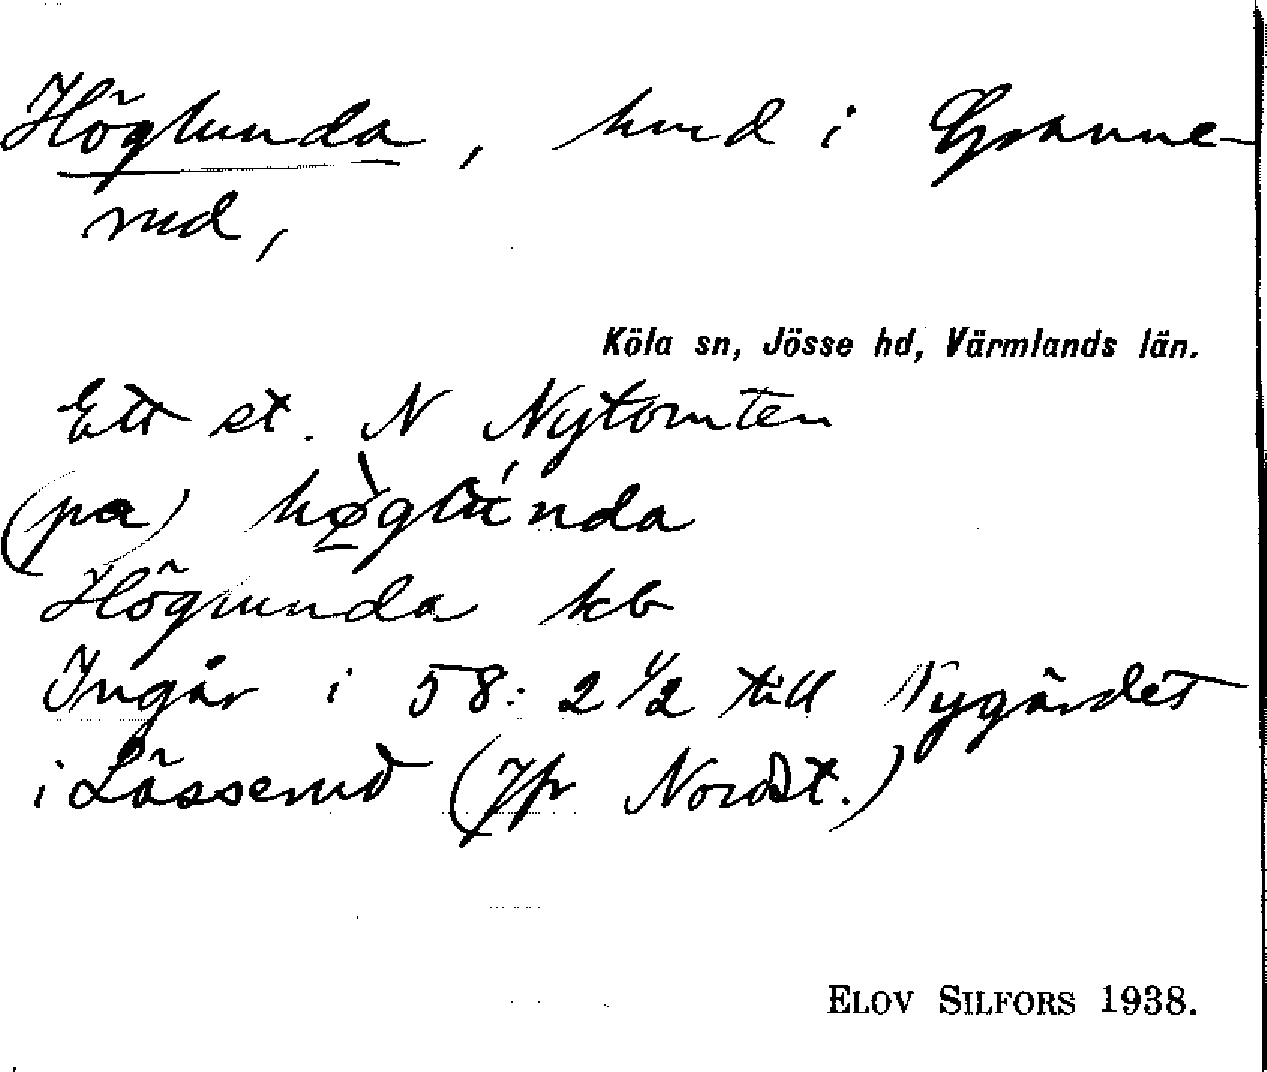 Höglunda, hmd i Granne-
rud,
Köla sn, Jösse hd, Värmlands län.
Ett st. N Nytomten
(pa) hø̀glúnda
Höglunda kb
Ingår i 58: 2 1/2 till Nygärdet
i Lässerud (Jfr Nordst.)
ELOV SILFORS 1938.